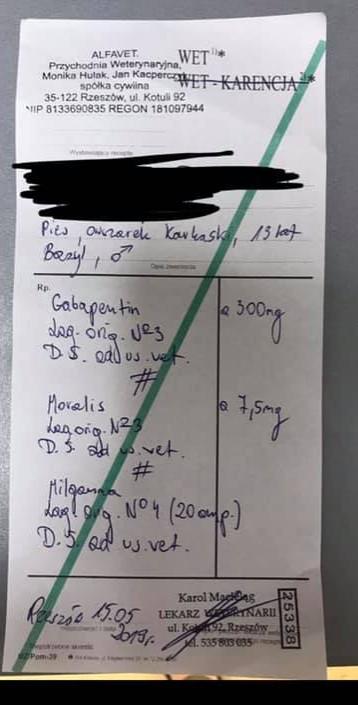 ALFAVET.
Przychodnia Weterynaryjna,
Monika Hulak, Jan Kacperczyk
spółka cywilna
35-122 Rzeszów, ul. Kotuli 92
NIP 8133690835 REGON 181097944
WET 1)*
WET - KARENCJA 2)*
Wystawiający receptę
Pies, owczarek Kaukaski, 13 lat
Bazyl, ♂
Opis zwierzęcia
Rp.
Gabapentin a 300mg
Lag. orig. No 3
D.S. ad us. vet.
#
Movalis a 7,5mg
Lag. orig. No 3
D.S. ad us. vet.
#
Milgamma
Lag. orig. No 4 (20 amp.)
D.S. ad us. vet.
Rzeszów 15.05
2019r.
Karol
LEKARZ WETERYNARII
ul. Kotuli 92, Rzeszów
tel. 535 803 035
25338
Niepotrzebne skreślić
MZ/Pom-39